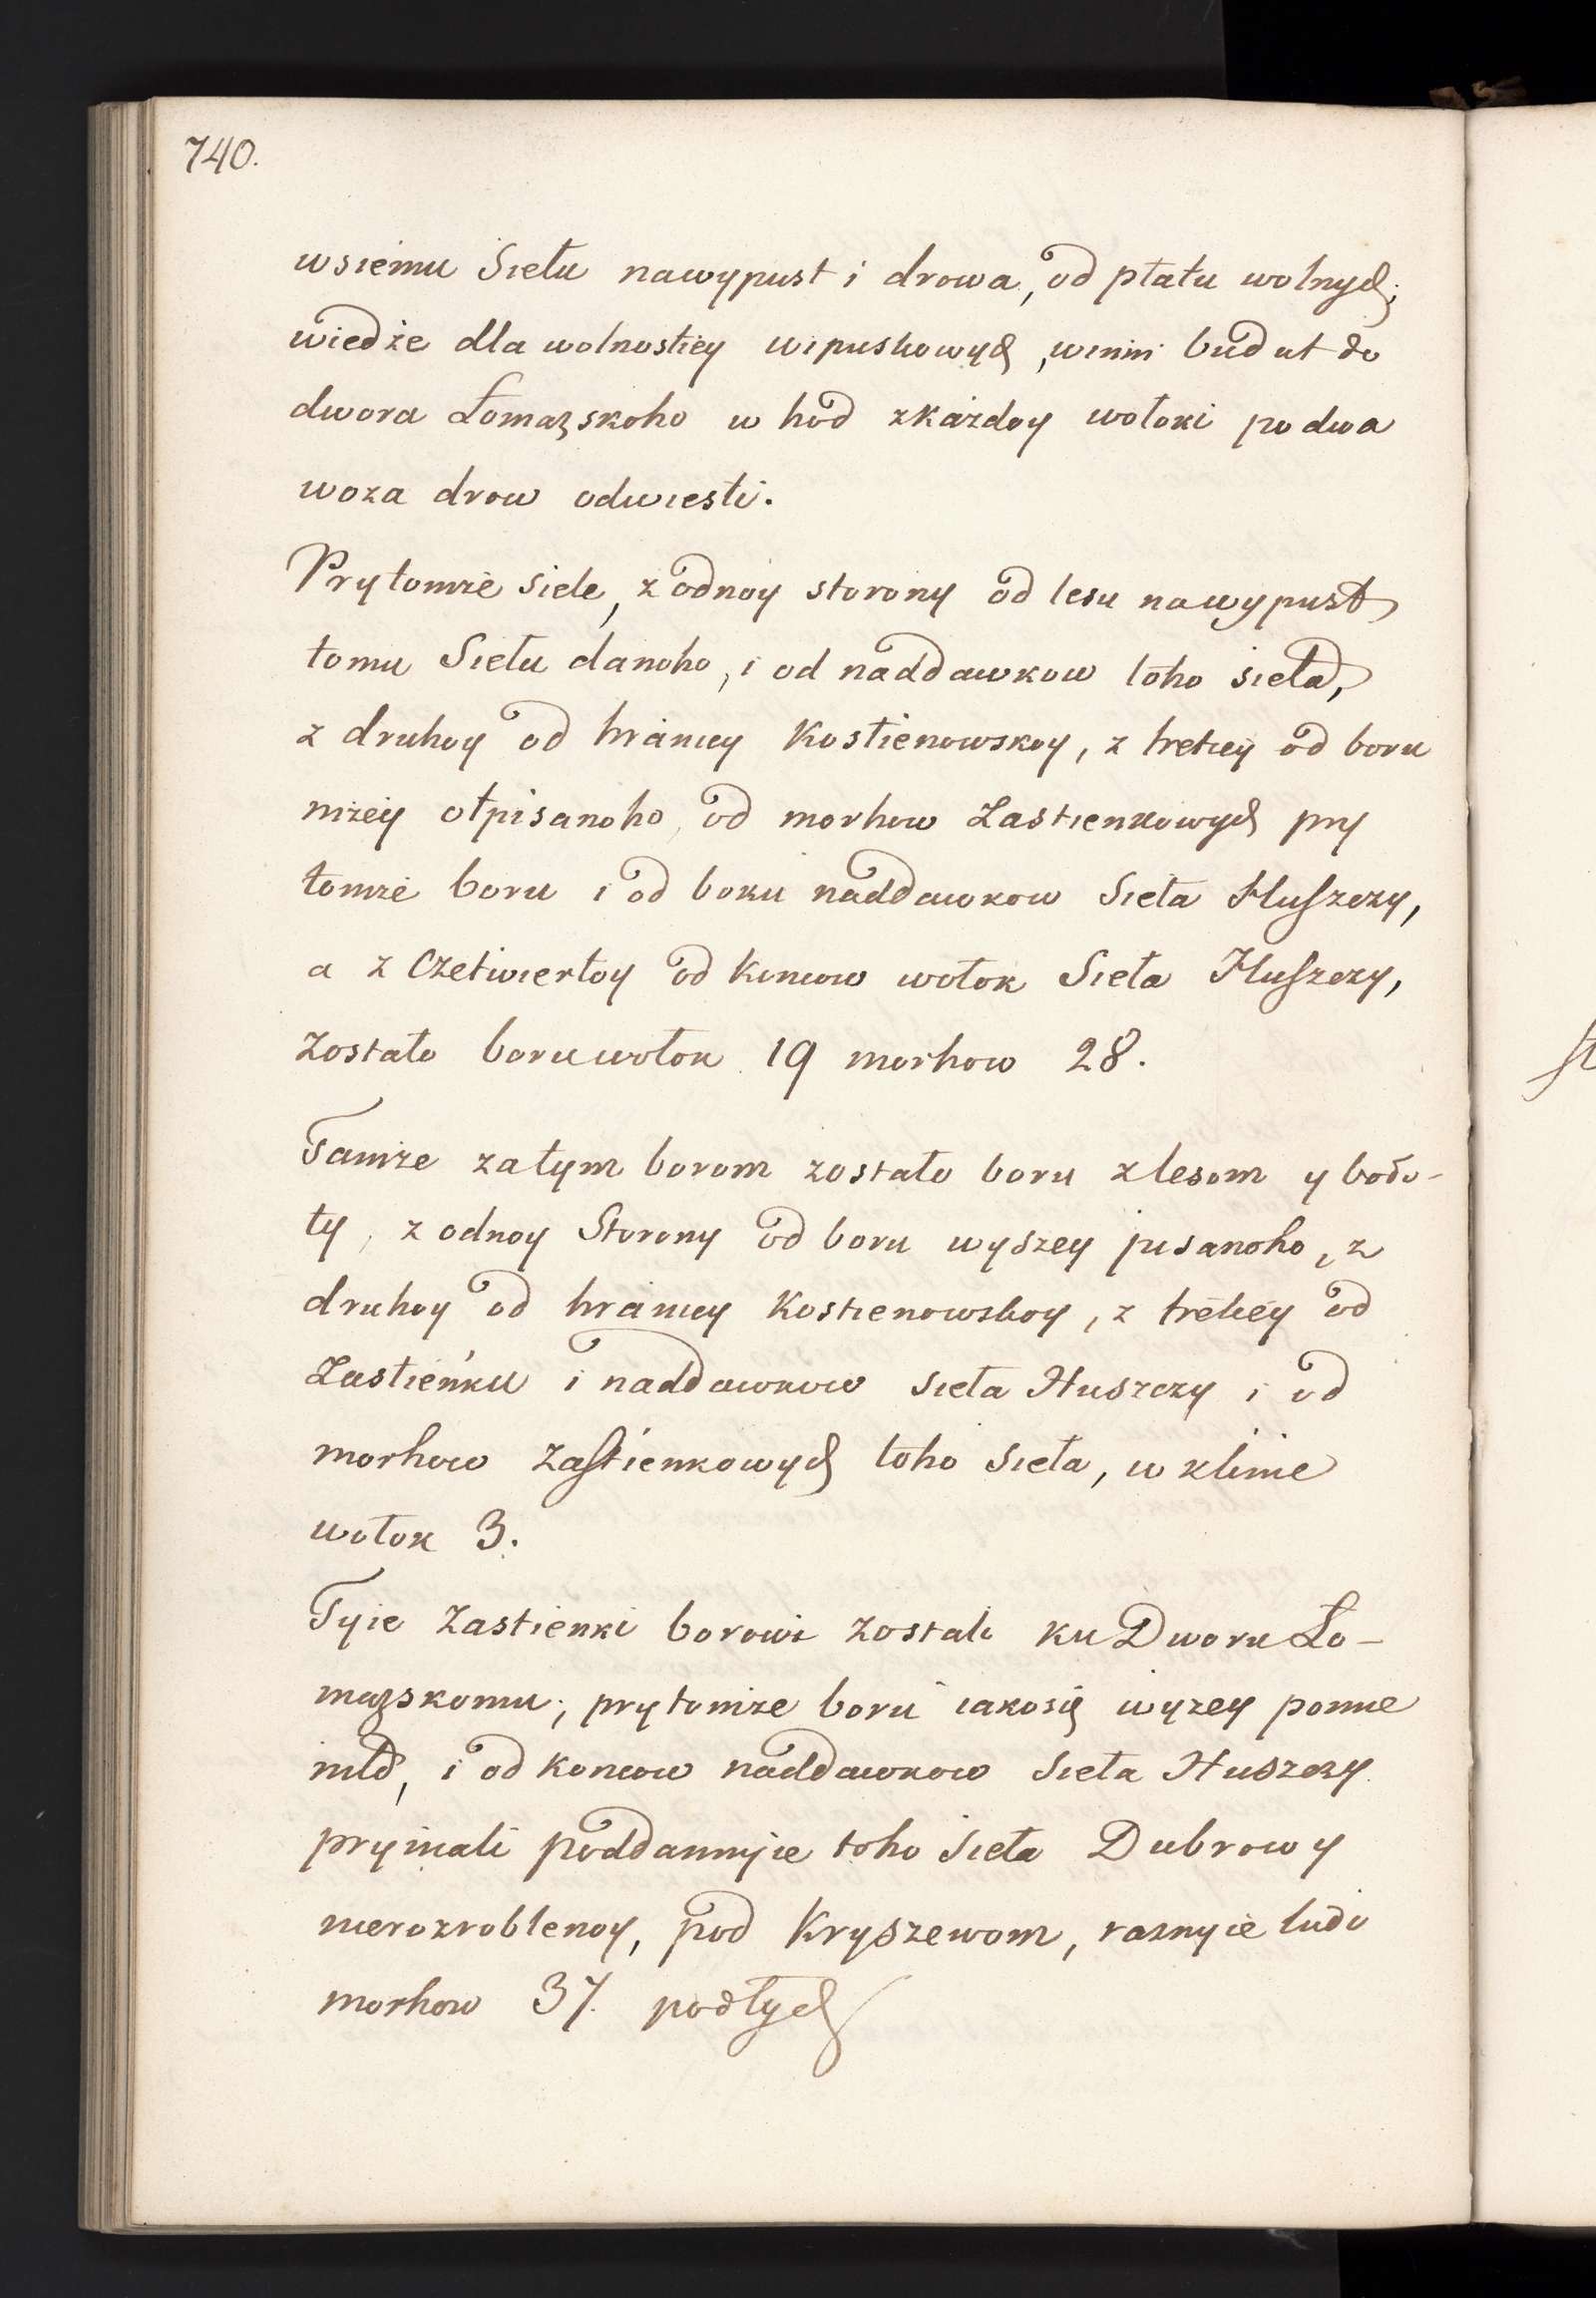 740.
wsiemu Siełu nawypust i drowa, od płatu wolnych;
wiedże dla wolnostiey wipuskowych, winni budut do
dwora Łomazskoho w hod zkażdoy wołoki po dwa
woza drow odwiesti.
Prytomże siele, z odnoy storony od lesu nawypust
tomu Siełu danoho, i od naddawkow toho sieła,
z druhoy od hranicy Kostienowskoy, z tretiey od boru
niżey otpisanoho, od morhow Zastienkowych pry
tomże boru i od boku naddawkow Sieła Huszczy,
a z czetwiertoy od Koncow wołok Sieła Huszczy,
Zostało boru wołok 19 morhow 28.
Tamże zatym borom zostało boru zlesom y boło-
ty, z odnoy Storony od boru wyszey pisanoho, z
druhoy od hranicy Kostienowskoy, z tretiey od
Zastieńku i naddawkow sieła Huszczy i od
morhow zastienkowych toho sieła, w klinie
wołok 3.
Tyie Zastienki borowi zostali ku Dworu Ło-
mazskomu; prytomże boru iakosię wyzey pomie
niło, i od koncow naddawkow sieła Huszczy
pryinali poddannyie toho sieła Dubrowy
nierozroblenoy, pod Kryszewom, raznyie ludi
morhow 37. podłych